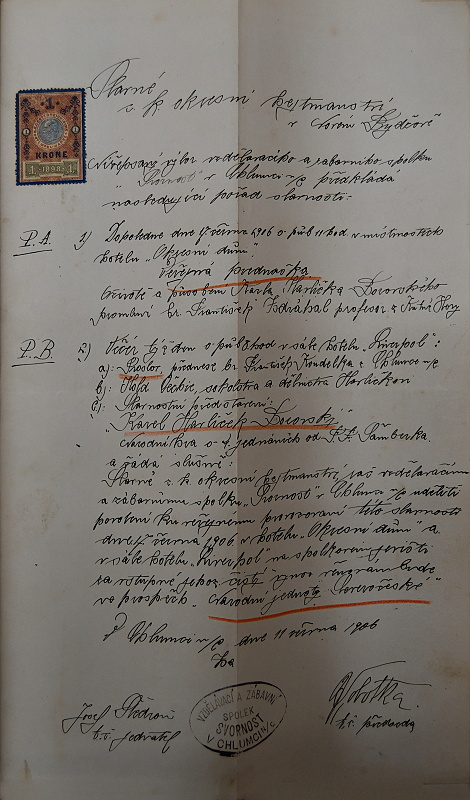 Slavné
c. k. okresní hejtmanství
v Novém Bydžově
1
KRONE
1. 1898. 1.
Níže psaný výbor vzdělávacího a zábavního spolku
"Svornost" v Chlumci n/c předkládá
následující pořad slavnosti:
P. A. 1) Dopoledne dne 17 června 1906 o půl 11 hod v místnostech
hotelu "Okresní dům"
Veřejná přednáška
O životě a působení Karla Havlíčka Borovského
promluví br. František Zdráhal profesor z Kutné Hory
P. B. 2) Večer týž den o půl hod v sále hotelu "Liverpol":
a): Proslov, přednese br. František Koudelka z Chlumce n/c
b): Hold Čechie, sokolstva a dělnictva Havlíčkovi
c): Slavnostní představení:
"Karel Havlíček Borovský"
Národní hra o 4 jednáních od F. F. Šamberka
a žádá slušně:
Slavné c. k. okresní hejtmanství, jež vzdělávacímu
a zábavnímu spolku "Svornost" v Chlumci n/c uděliti
povolení ku veřejnému provozování této slavnosti
dne 17 června 1906 v hotelu "Okresní dům" a
v sále hotelu "Liverpol" na spolkovém jevišti
za vstupné jehož čistý výnos věnován bude
ve prospěch "Národní jednoty Severočeské"
V Chlumci n/c dne 11 června 1906
Za
VZDĚLÁVACÍ A ZÁBAVNÍ
SPOLEK
SVORNOST
V CHLUMCI N/C
Josef
t. č. jednatel
Sobotka
t. č. předseda